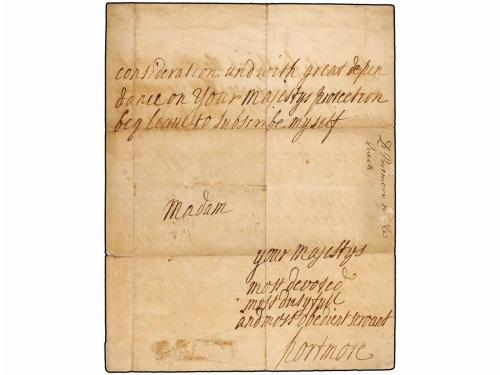 consideration and with great depen
dance on Your Majestys protection
beg leave to subscribe myself
Madam
your Majestys
most devoted
most dutyfull
and most obedient servant
Portmore
Ld Portmore to the
Queen